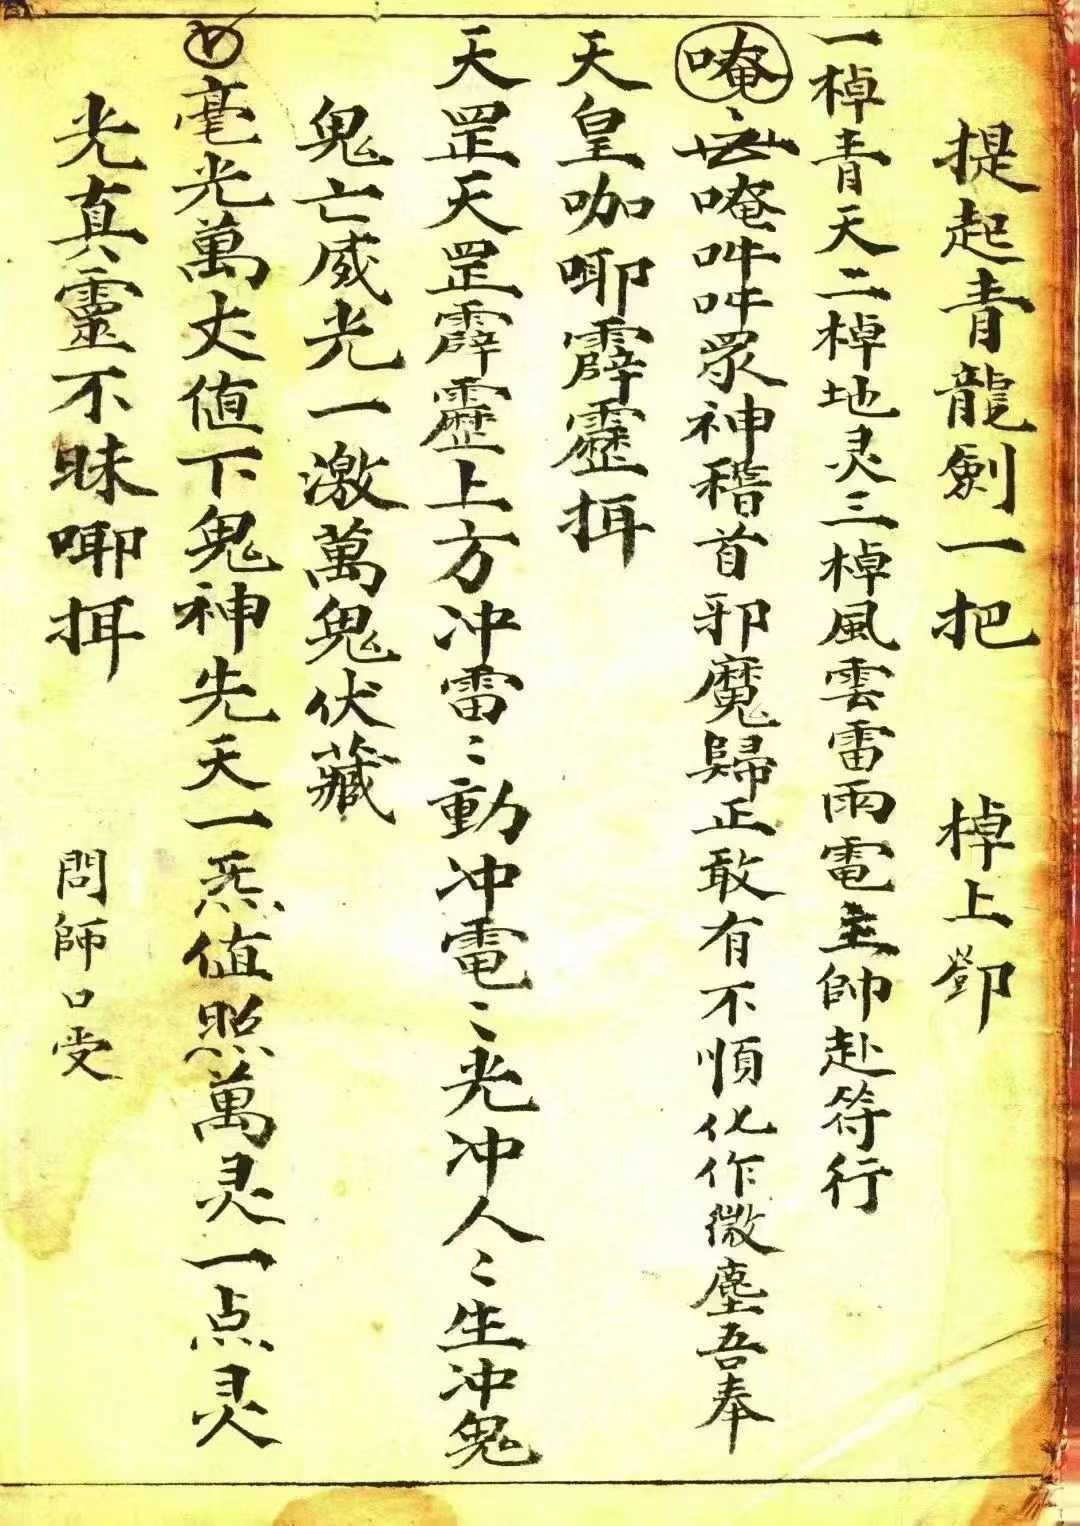 提起青龍劍一把 棹上鄧
一棹青天二棹地灵三棹風雲雷雨電主帥赴符行
唵 唵吽吽眾神稽首邪魔歸正敢有不順化作微塵吾奉
天皇咖唧霹靂揖
天罡天罡霹靂上方冲雷〻動冲電〻光冲人〻生冲鬼
鬼亡威光一激萬鬼伏藏
毫光萬丈值下鬼神先天一炁值照萬灵一点灵
光真靈不昧唧揖 問師口受